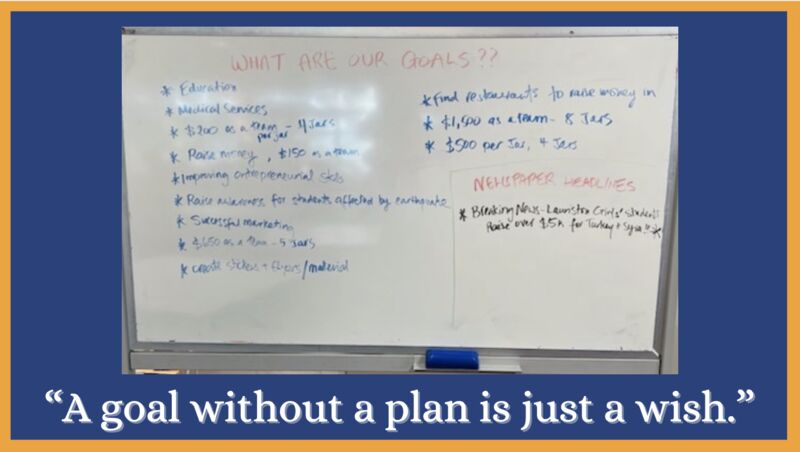 WHAT ARE OUR GOALS??
* Education
* Medical Services
* $200 as a team - 4 Jars
per jar
* Raise money, $150 as a team
* Improving entrepreneurial skills
* Raise awareness for students affected by earthquake
* Successful marketing
* $650 as a team - 5 Jars
* create stickers + flyers/material
* Find restaurants to raise money in
* $1,500 as a team - 8 Jars
* $500 per Jar, 4 Jars
NEWSPAPER HEADLINES
* Breaking News - Lauriston Girls' students
Raise over $5k for Turkey + Syria!! *
“A goal without a plan is just a wish.”